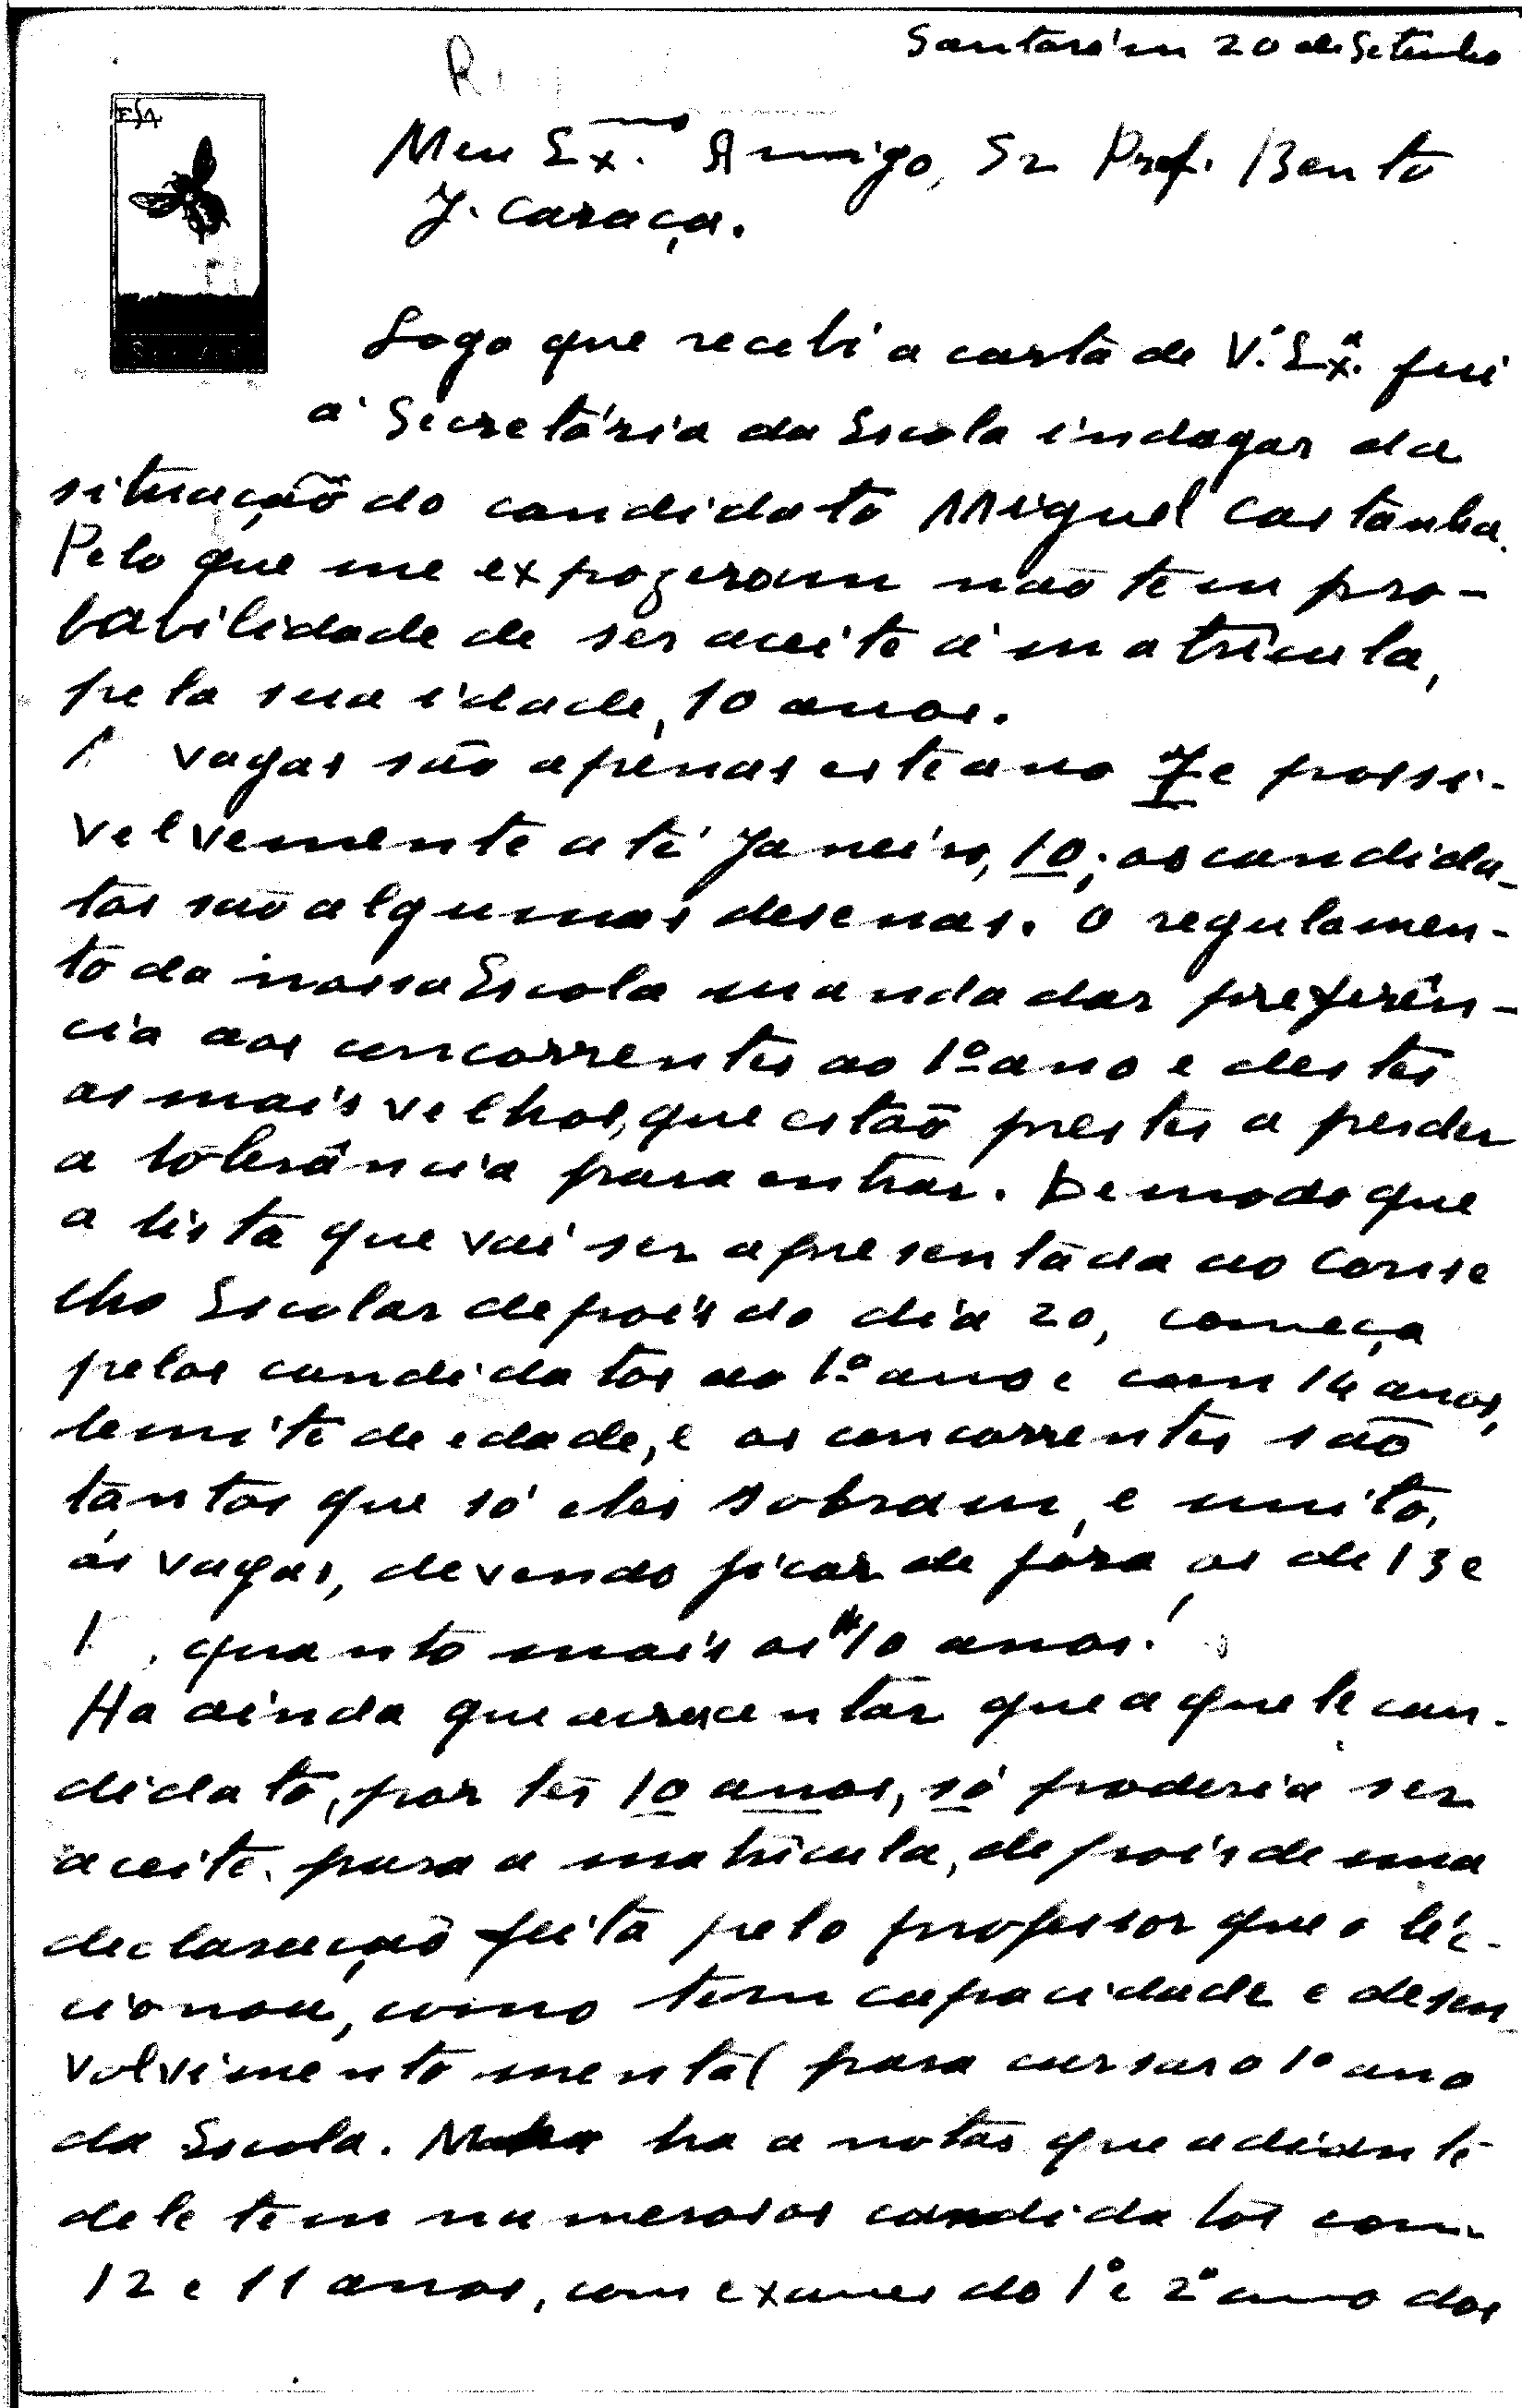 Santarém 20 de Setembro
R
ESA
Meu Ex.mo Amigo, Sr Prof. Bento
J. Caraça.
Logo que recebi a carta de V. Ex.ª fui
á Secretária da Escola indagar da
situação do candidato Miguel Castanha.
Pelo que me expozeram não tem pro-
babilidade de ser aceite á matrícula,
pela sua idade, 10 anos.
vagas são apenas este ano 7 e possi-
velvemente até Janeiro, 10; os candida-
tos são algumas desenas. O regulamen-
to da nossa Escola manda dar preferên-
cia aos concorrentes ao 1º ano e destes
os mais velhos, que estão prestes a perder
a tolerância para entrar. De modo que
a lista que vai ser apresentada ao Conse
lho Escolar depois do dia 20, começa
pelos candidatos ao 1º ano e com 14 anos,
limite de edade, e os concorrentes são
tantos que só eles sobram, e muito,
ás vagas, devendo ficar de fóra os de 13 e
, quanto mais os 10 anos!
Ha ainda que acrecentar que aquele can-
didato, por ter 10 anos, só poderia ser
aceite para a matrícula, depois de uma
declaração feita pelo professor que o léc-
cionou, como tem capacidade e desen
volvimento mental para cursar o 1º ano
da Escola. ha a notar que adiante
dele tem numerosos candidatos com
12 e 11 anos, com exames do 1º e 2º ano dos